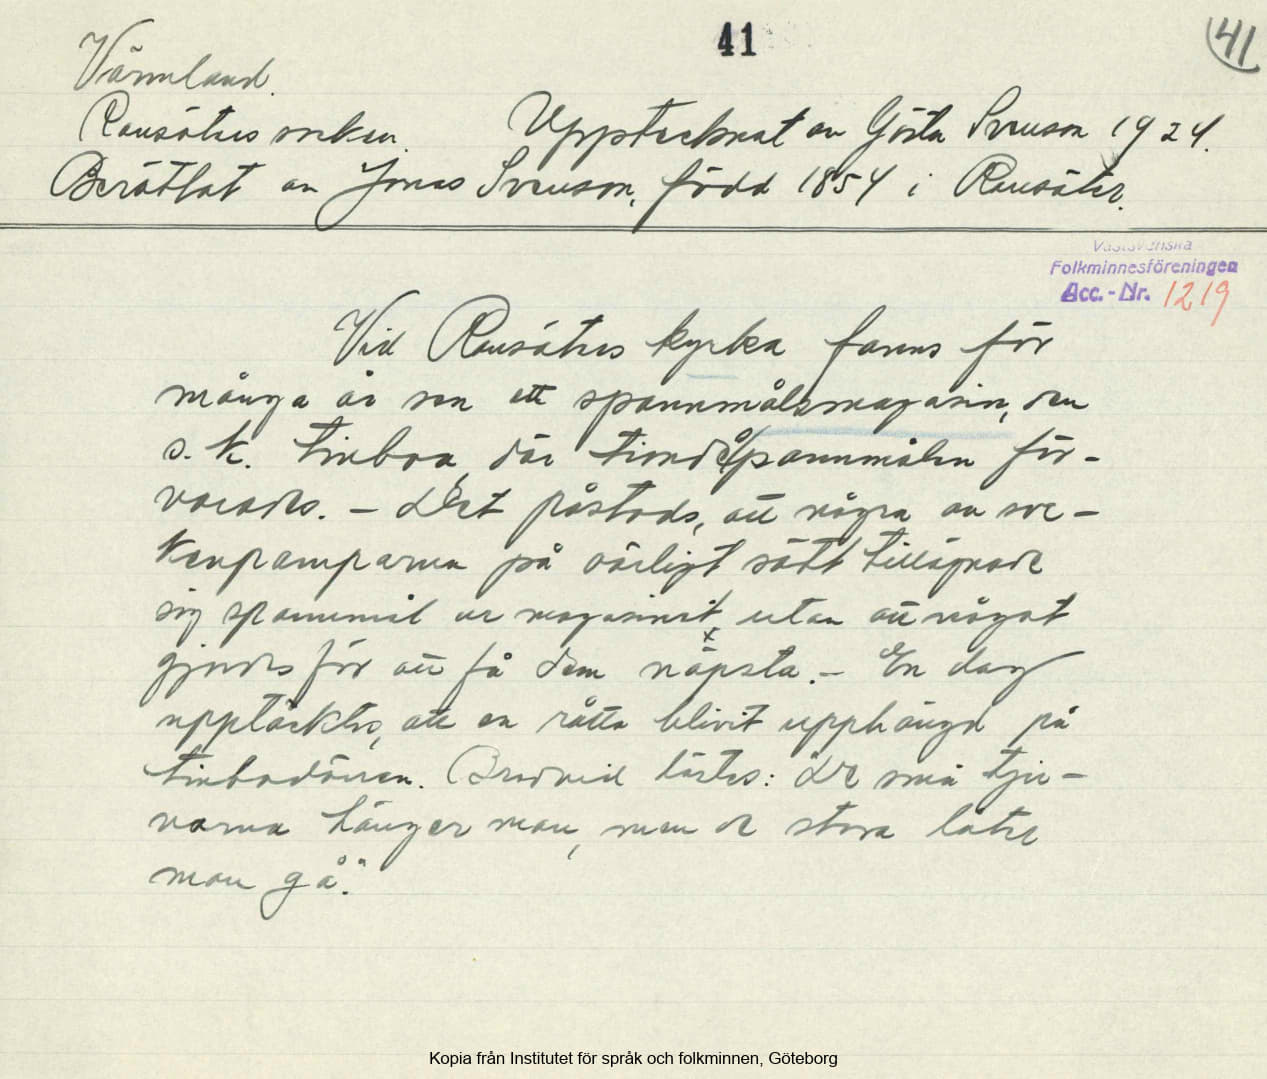 41
41
Värmland.
Ransäters socken. Upptecknat av Gösta Svenson 1924.
Berättat av Jonas Svenson, född 1854 i Ransäter.
Västsvenska
Folkminnesföreningen
Acc.-Nr. 1219
Vid Ransäters kyrka fanns för
många år sen ett spannmålsmagasin, den
s.k. tinboa, där tiondespannmålen för-
varades. – Det påstods, att några av soc-
kenpamparna på oärligt sätt tillägnade
sig spannmål ur magasinet, utan att något
gjordes för att få dem näpsta. – En dag
upptäcktes, att en råtta blivit upphängd på
tinbodörren. Bredvid lästes: "De små tju-
varna hänger man, men de stora låter
man gå."
Kopia från Institutet för språk och folkminnen, Göteborg